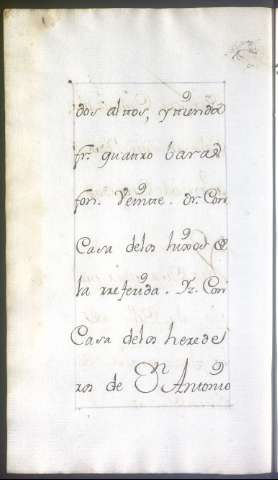 dos altos, y tienda
fr. quatro baras
fon. Veinte. Dr. Con
Casa delos hixos de
la rreferida. Yz. Con
Casa delos herede
ros de Dn Antonio